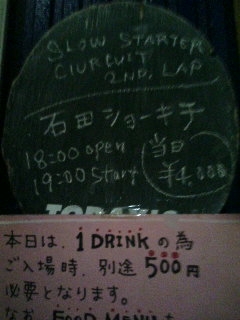 SLOW STARTER
CIURCUIT
2ND. LAP
石田ショーキチ
18:00 open
19:00 Start
当日
¥4,000
本日は、1 DRINK の為
ご入場時、別途 500円
必要となります。
なお、FOOD MENU も